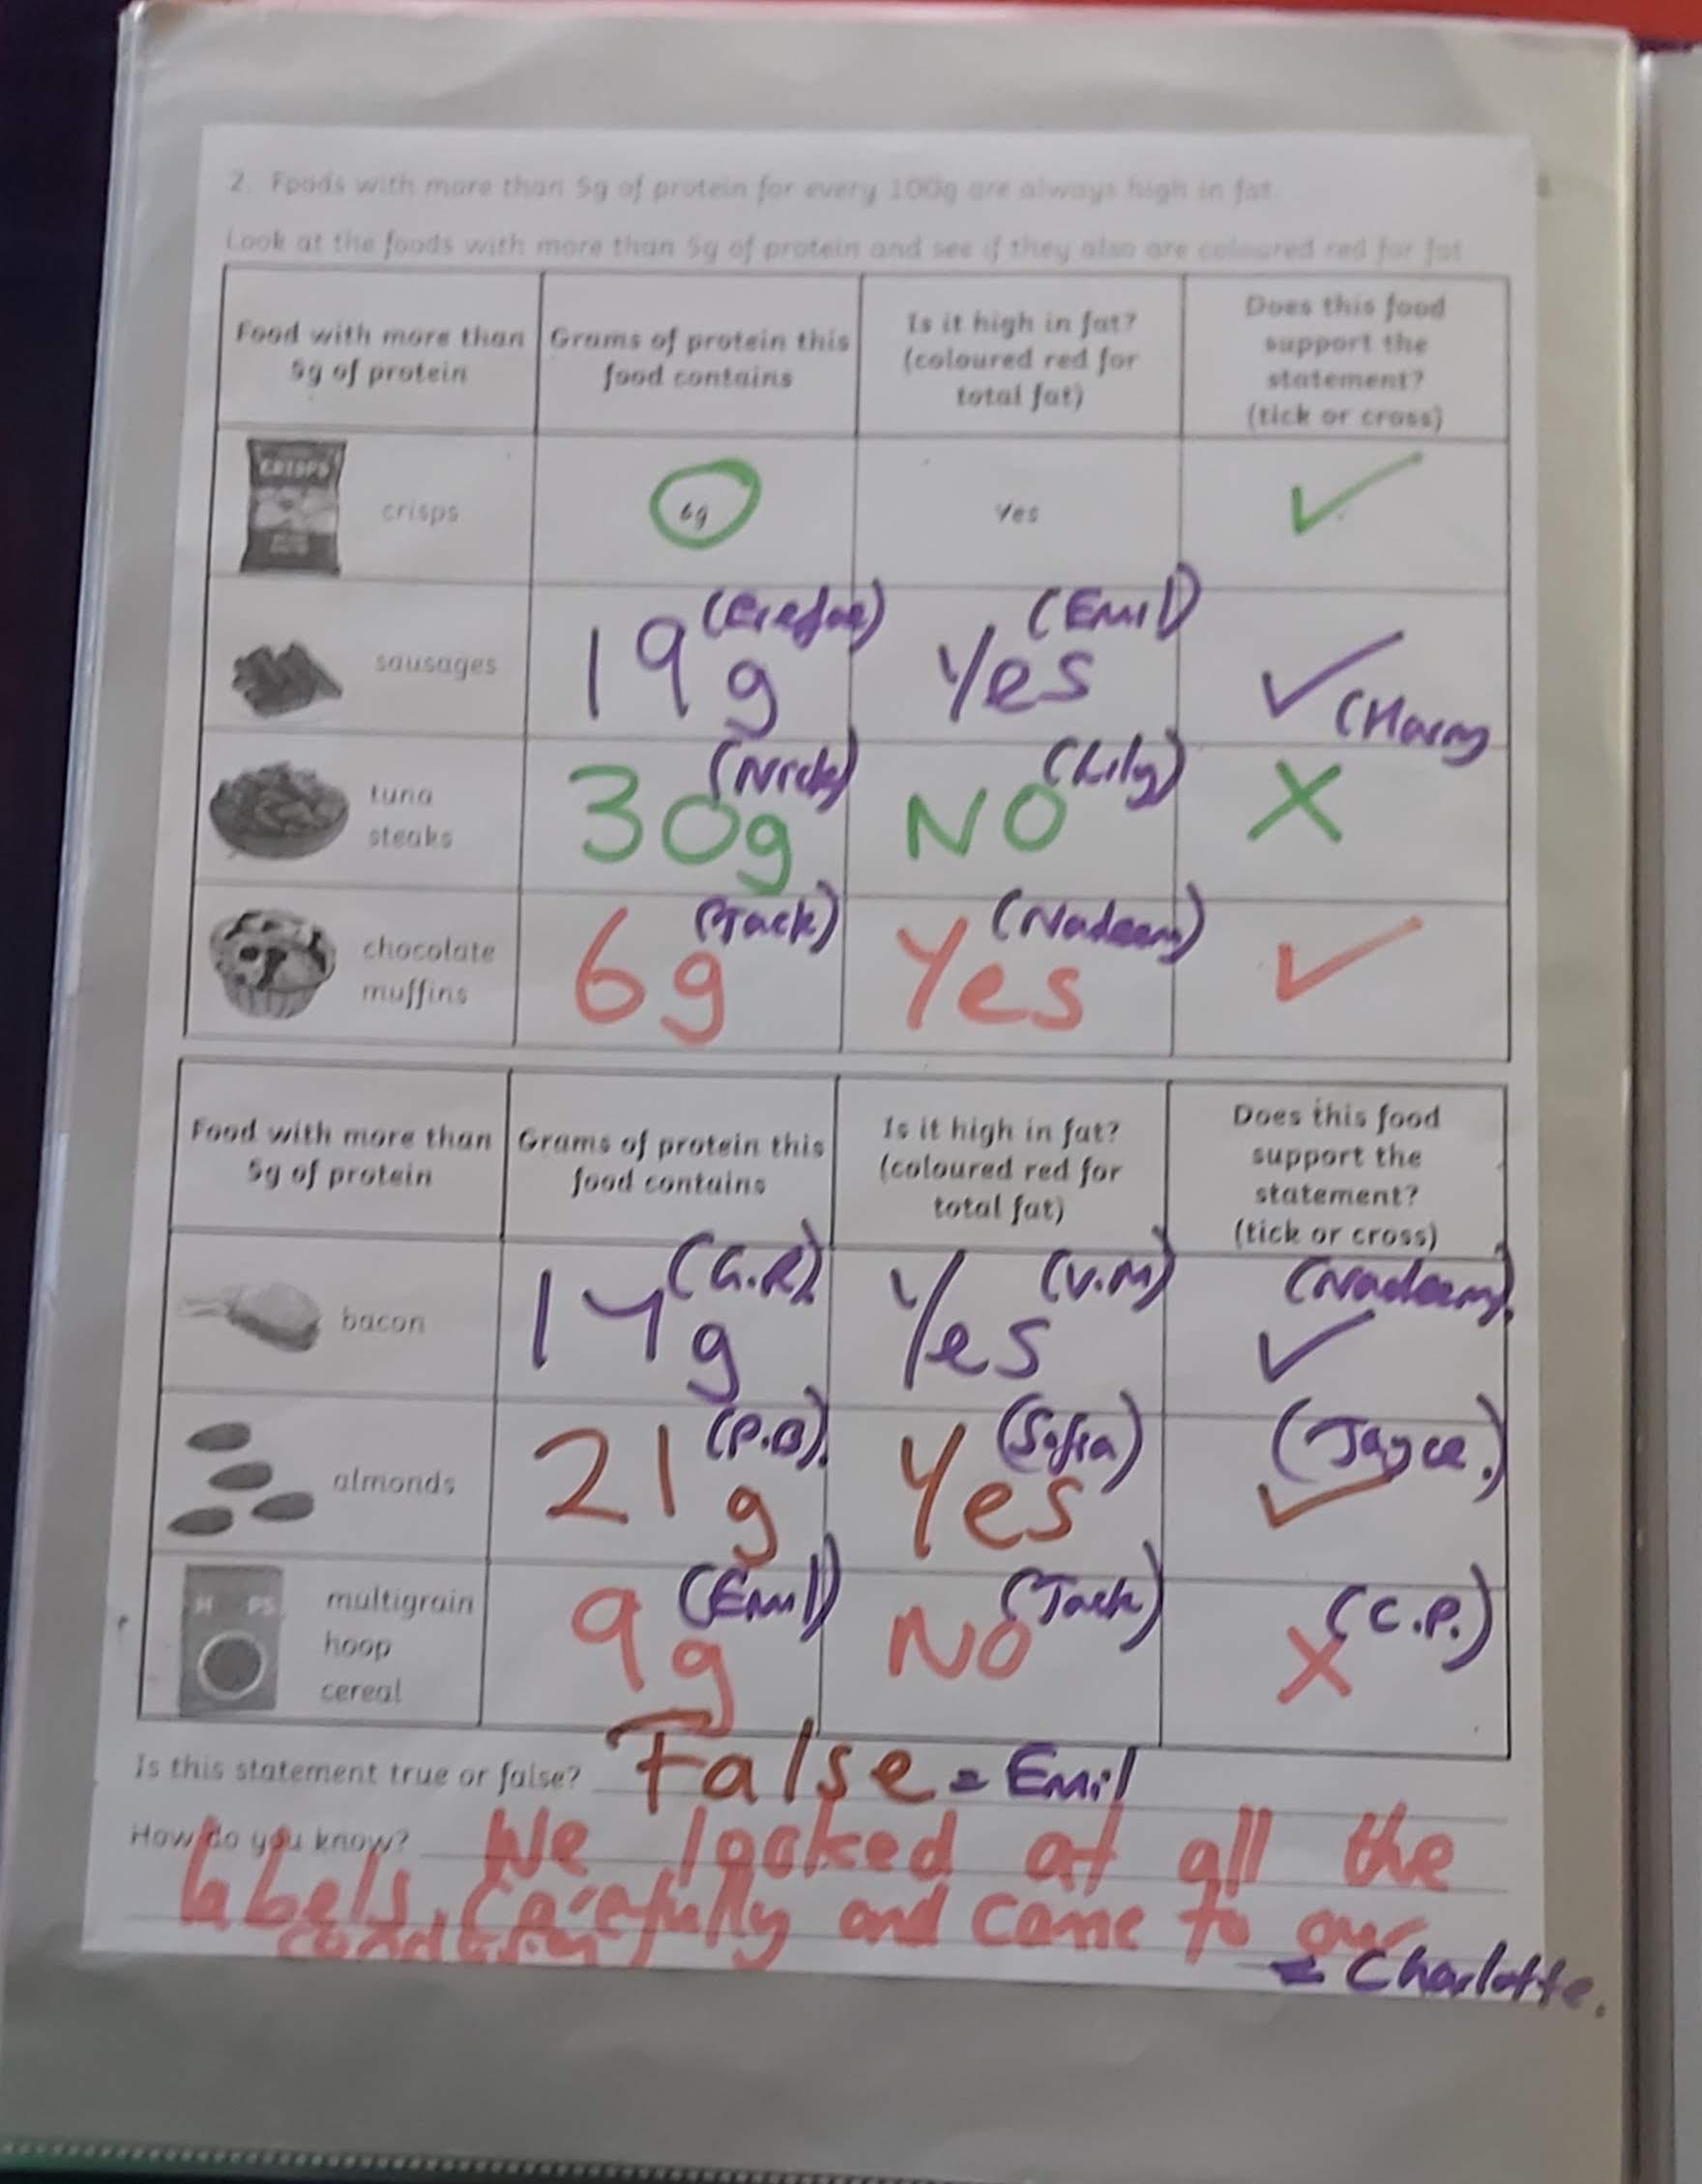 2. Foods with more than 5g of protein for every 100g are always high in fat.
Look at the foods with more than 5g of protein and see if they also are coloured red for fat
Food with more than 5g of protein
Grams of protein this food contains
Is it high in fat? (coloured red for total fat)
Does this food support the statement? (tick or cross)
CRISPS
crisps
6g
Yes
✓
sausages
19g
Yes (Emil)
✓
tuna steaks
30g (Nick)
NO (Lily)
X
chocolate muffins
6g (Jack)
Yes (Nadeem)
✓
Food with more than 5g of protein
Grams of protein this food contains
Is it high in fat? (coloured red for total fat)
Does this food support the statement? (tick or cross)
bacon
g (G.R)
Yes (V.M)
✓ (Nadeem).
almonds
21g (P.B).
Yes (Sofia)
✓ (Jayce.)
H PS
multigrain hoop cereal
9g (Emil)
NO (Jack)
X (C.P.)
Is this statement true or false? False = Emil
How do you know? We looked at all the
labels carefully and came to our
= Charlotte.